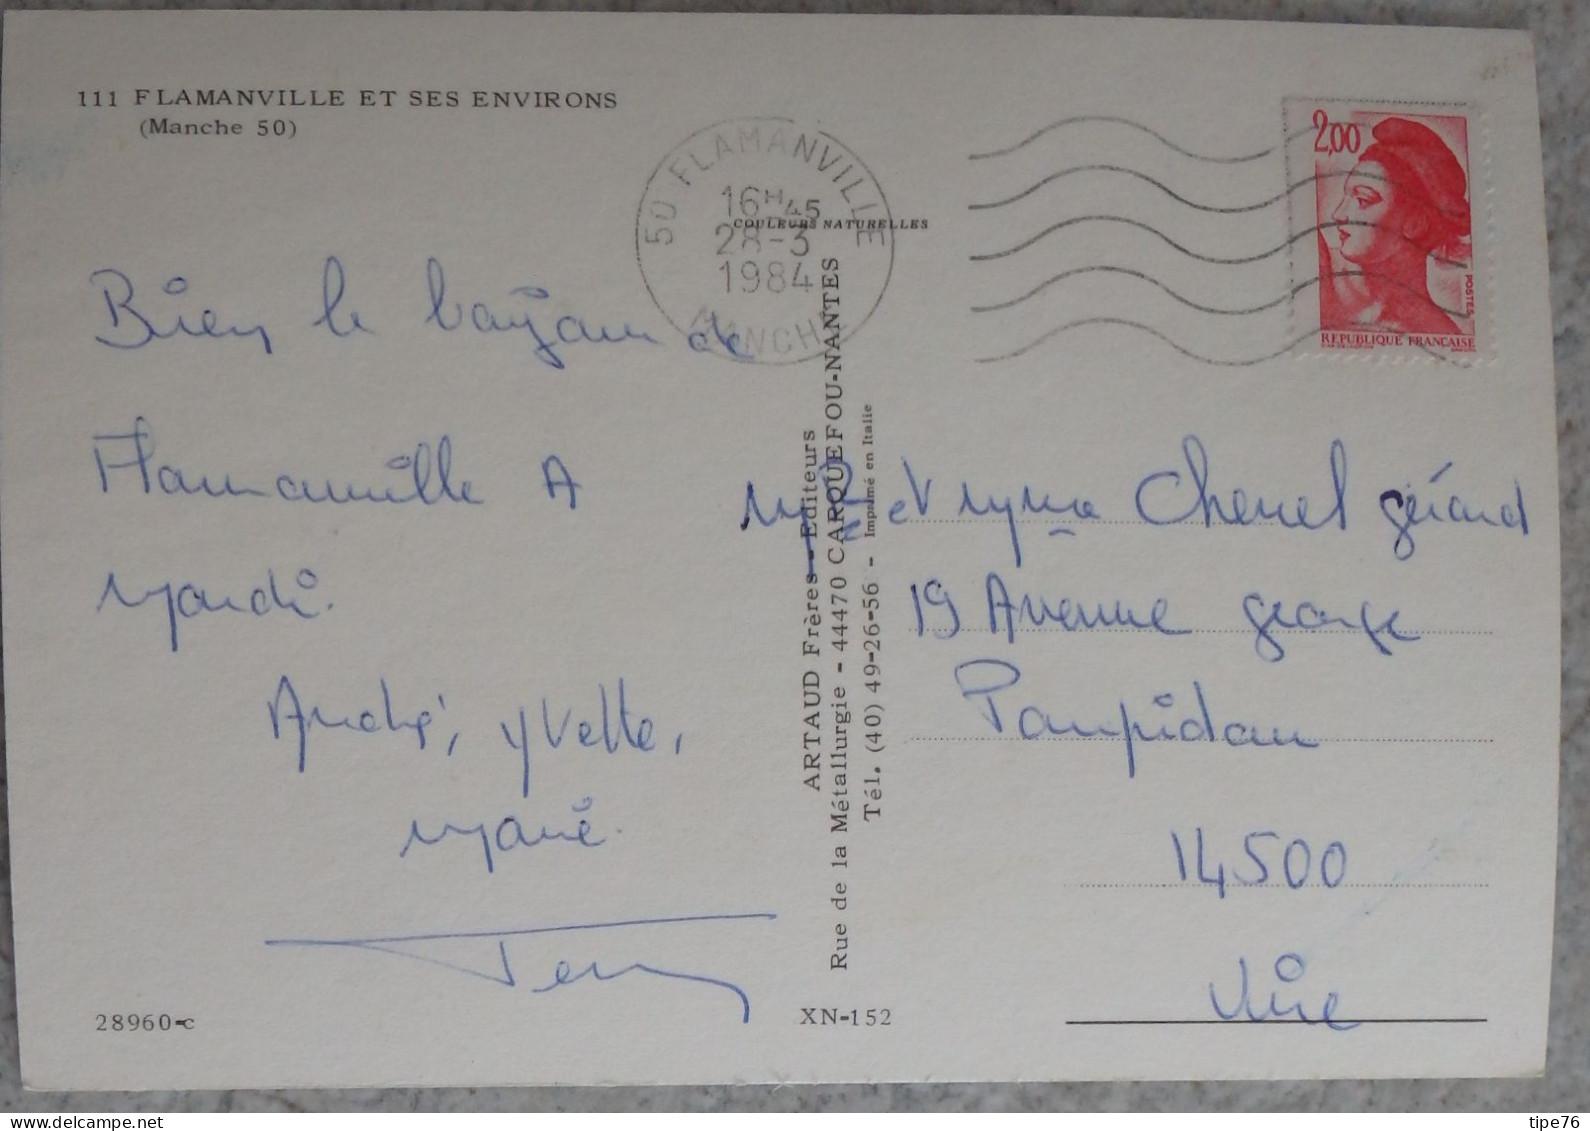 111 FLAMANVILLE ET SES ENVIRONS
(Manche 50)
50 FLAMANVILLE
16H45
28-3
1984
MANCHE
COULEURS NATURELLES
2,00
POSTES
REPUBLIQUE FRANÇAISE
Bien le bonjour de
Flamanville A
Mardi.
André, Yvette,
Marie.
28960-c
ARTAUD Frères - Editeurs
Rue de la Métallurgie - 44470 CARQUEFOU-NANTES
Tél. (40) 49-26-56 - Imprimé en Italie
XN-152
Mr et Mme Chenel gérard
19 Avenue george
Pompidou
14500
Vire
tipe76
delcampe.net